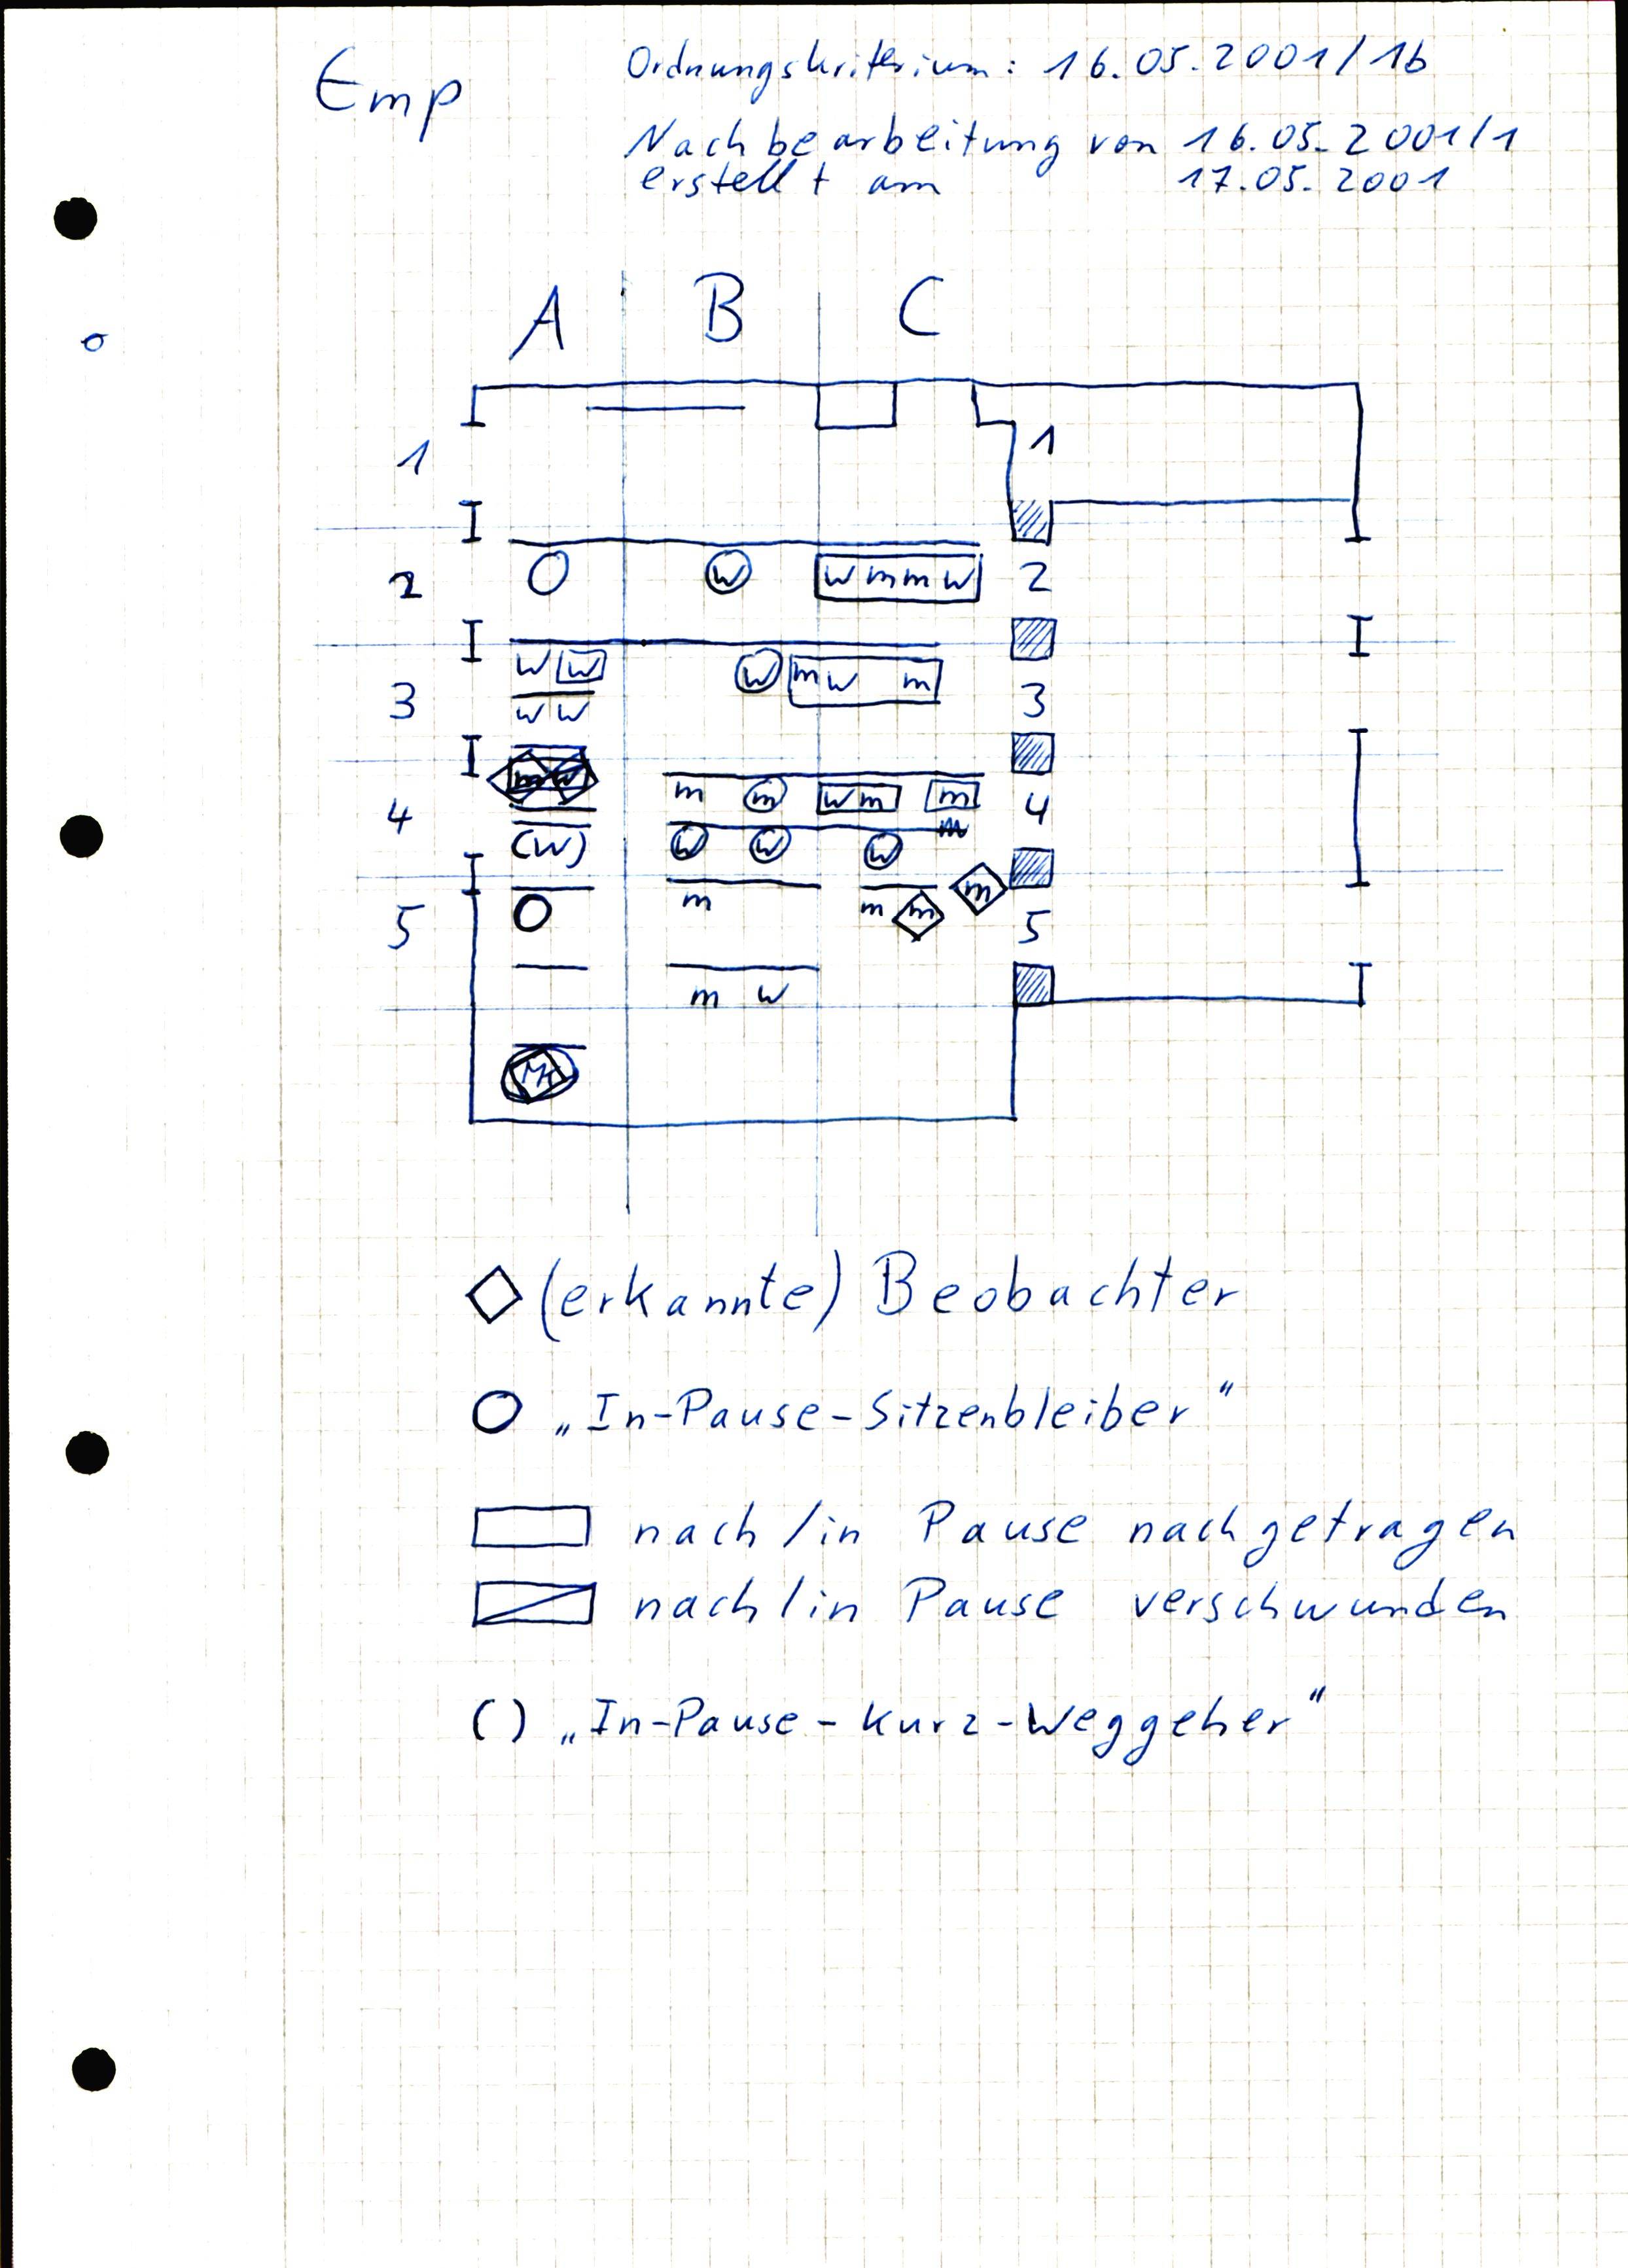 Emp
Ordnungskriterium: 16.05.2001/1b
Nachbearbeitung von 16.05.2001/1
erstellt am 17.05.2001
A B C
1 1
2 W W m m W 2
W W W m W m
3 3
W W
m W
m m W m m
4 4
m
(W) W W W
m
m m m
5 5
m W
MK
(erkannte) Beobachter
„In-Pause-Sitzenbleiber“
nach/in Pause nachgetragen
nach/in Pause verschwunden
() „In-Pause-kurz-Weggeher“